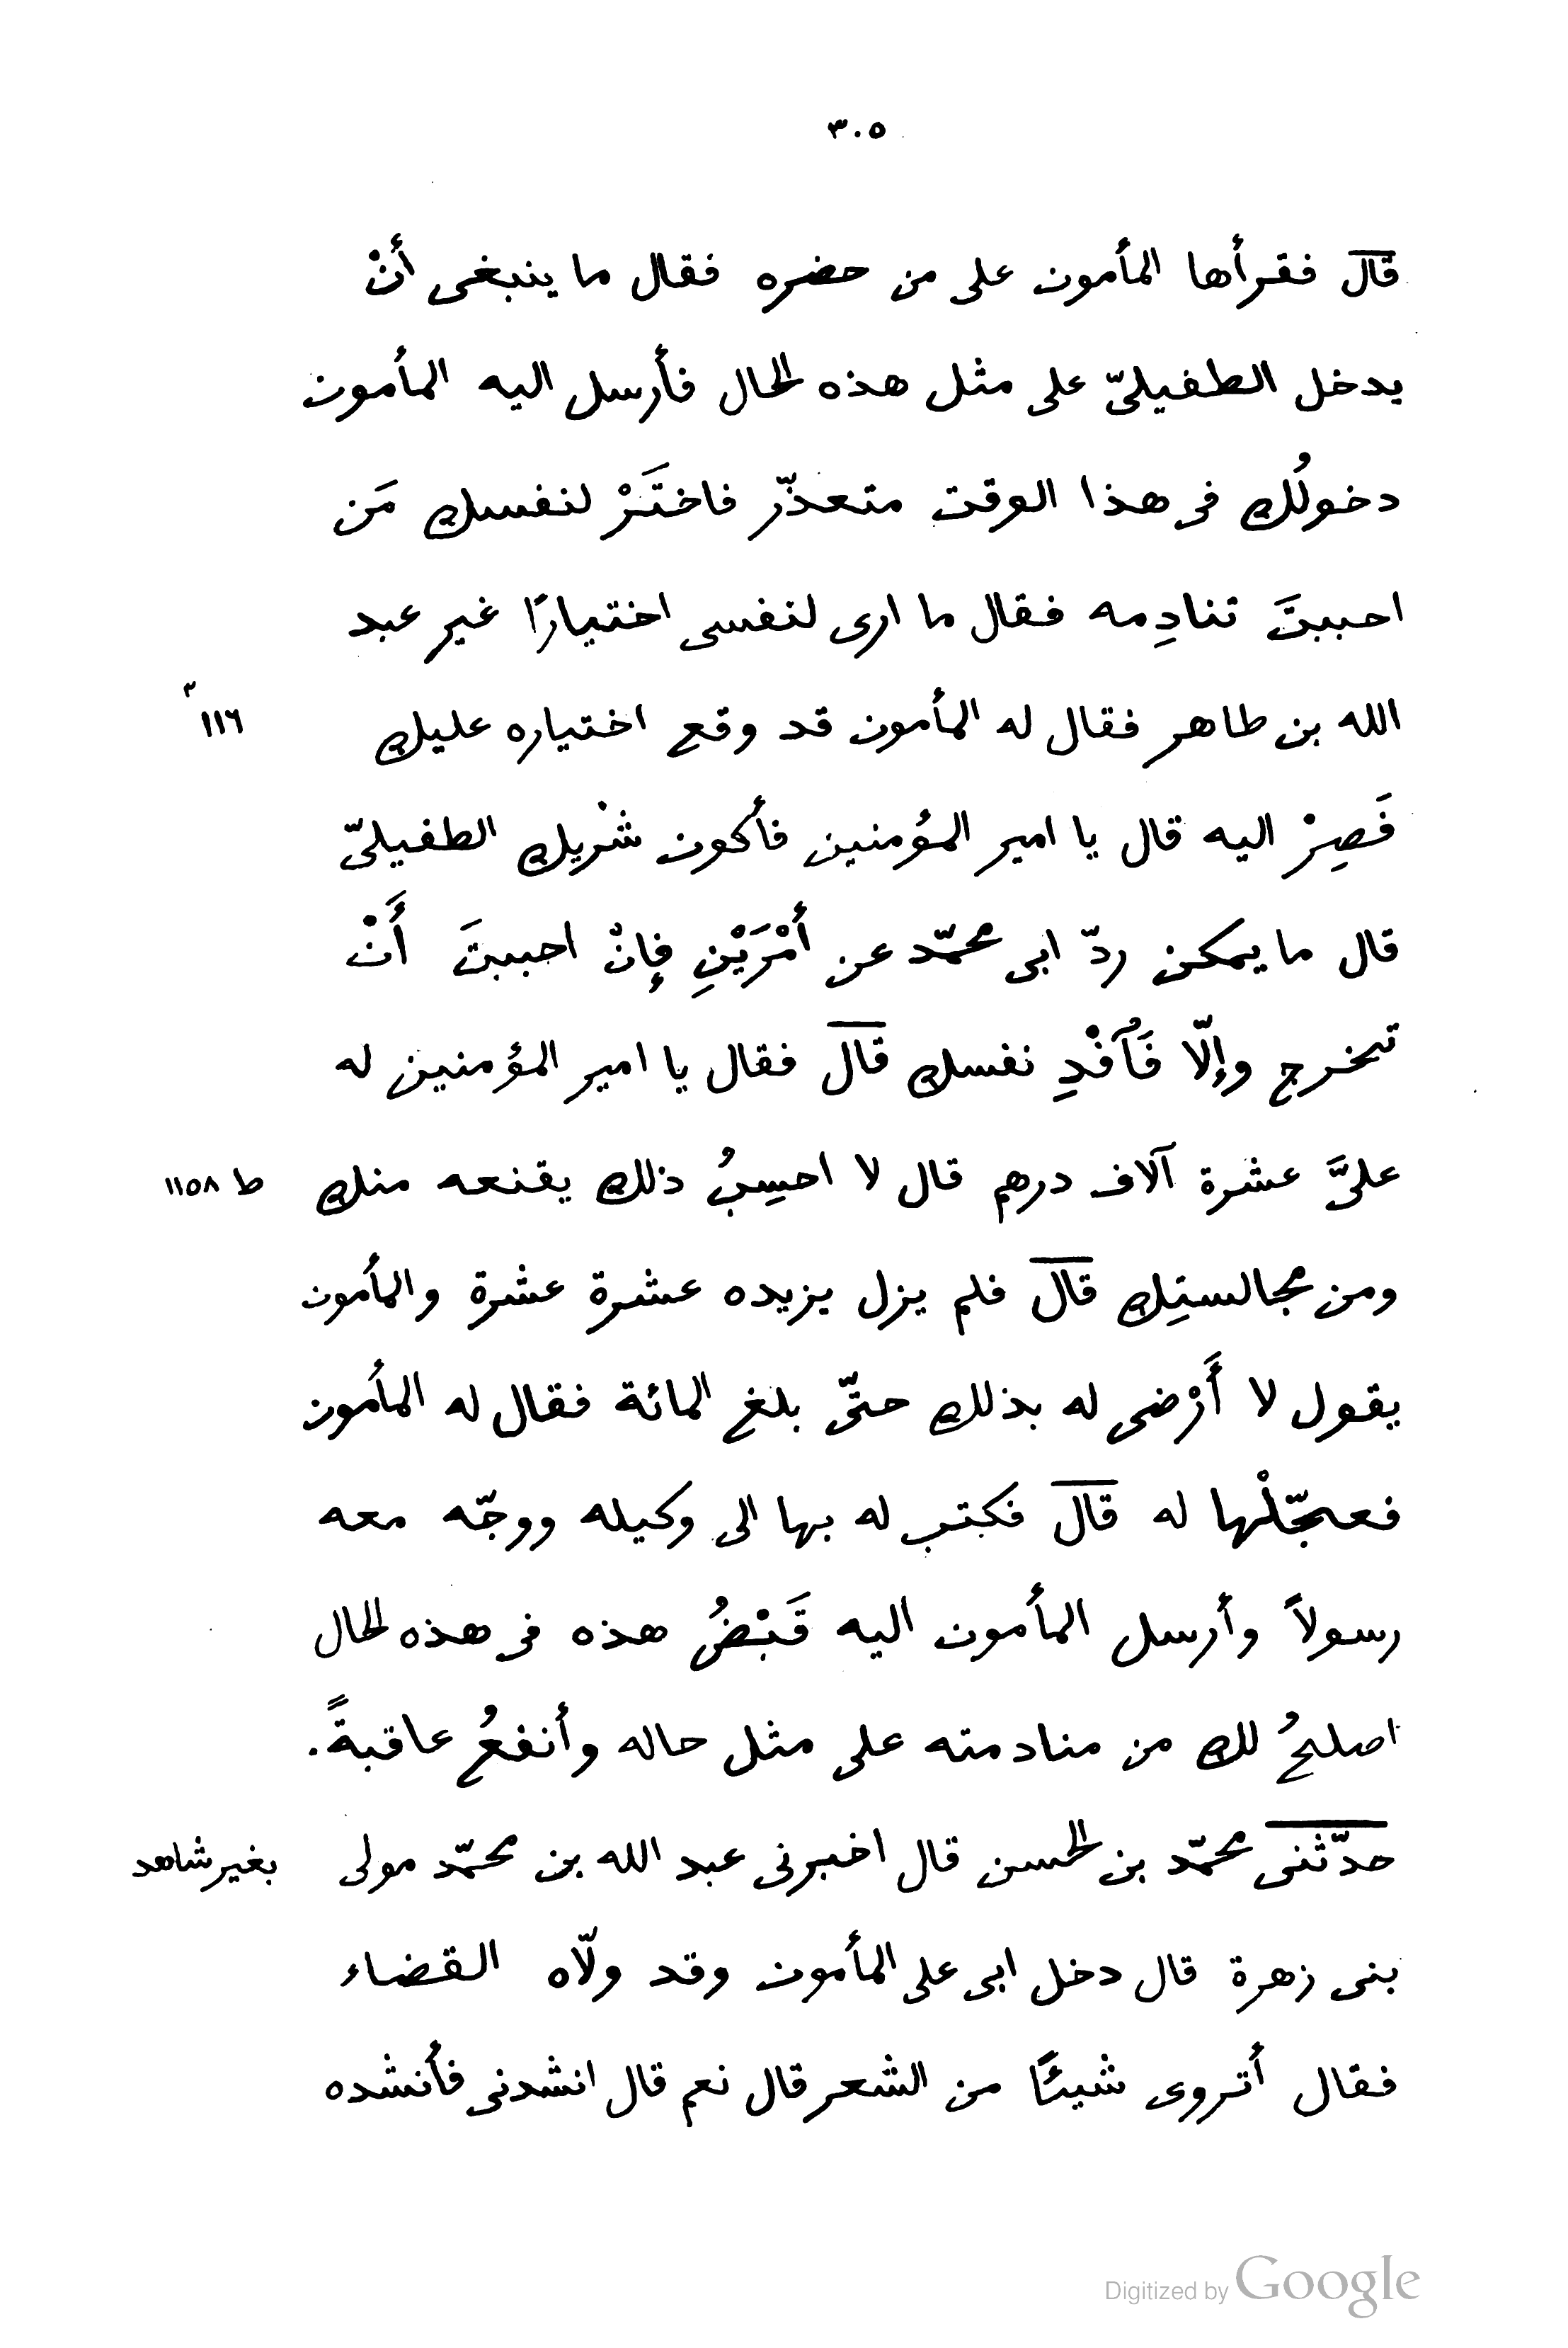 ٣٠٥
قال فقرأها المأمون على من حضره فقال ما ينبغى أنْ
يدخل الطفيلىّ على مثل هذه الحال فأرسل اليه المأمون
دخولُك فى هذا الوقت متعذّر فاختَرْ لنفسك مَن
احببتَ تنادِمه فقال ما ارى لنفسى اختيارًا غير عبد
الله بن طاهر فقال له المأمون قد وقع اختياره عليك
١١٦
فَصِرْ اليه قال يا امير المؤمنين فأكون شريك الطفيلىّ
قال ما يمكن ردّ ابى محمّد عن أمْرَيْنِ فإنْ احببتَ أَنْ
تخرج وإلّا فَآفْدِ نفسك قال فقال يا امير المؤمنين له
علىَّ عشرة آلاف درهم قال لا احسِبُ ذلك يقنعه منك
ط ١١٥٨
ومن مجالستِك قال فلم يزل يزيده عشرة عشرة والمأمون
يقول لا أَرْضى له بذلك حتّى بلغ المائة فقال له المأمون
فعجّلْها له قال فكتب له بها الى وكيله ووجّه معه
رسولاً وأرسل المأمون اليه قَبْضُ هذه فى هذه الحال
اصلحُ لك من منادمته على مثل حاله وأنفعُ عاقبةً.
حدّثنى محمّد بن الحسن قال اخبرنى عبد الله بن محمّد مولى
بغير شاهد
بنى زهرة قال دخل ابى على المأمون وقد ولّاه القضاء
فقال أتروى شيئًا من الشعر قال نعم قال انشدنى فأنشده
Digitized by Google